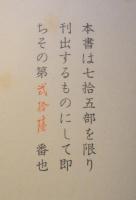 本書は七拾五部を限り
刊出するものにして即
ちその第弐拾陸番也